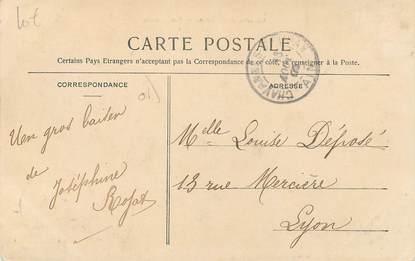 Lot
CARTE POSTALE
Certains Pays Etrangers n'acceptant pas la Correspondance de ce côté, se renseigner à la Poste
CORRESPONDANCE
ADRESSE
AIN
Un gros baiser
de
Joséphine
Melle Louise Déposé
13 rue Mercière
Lyon